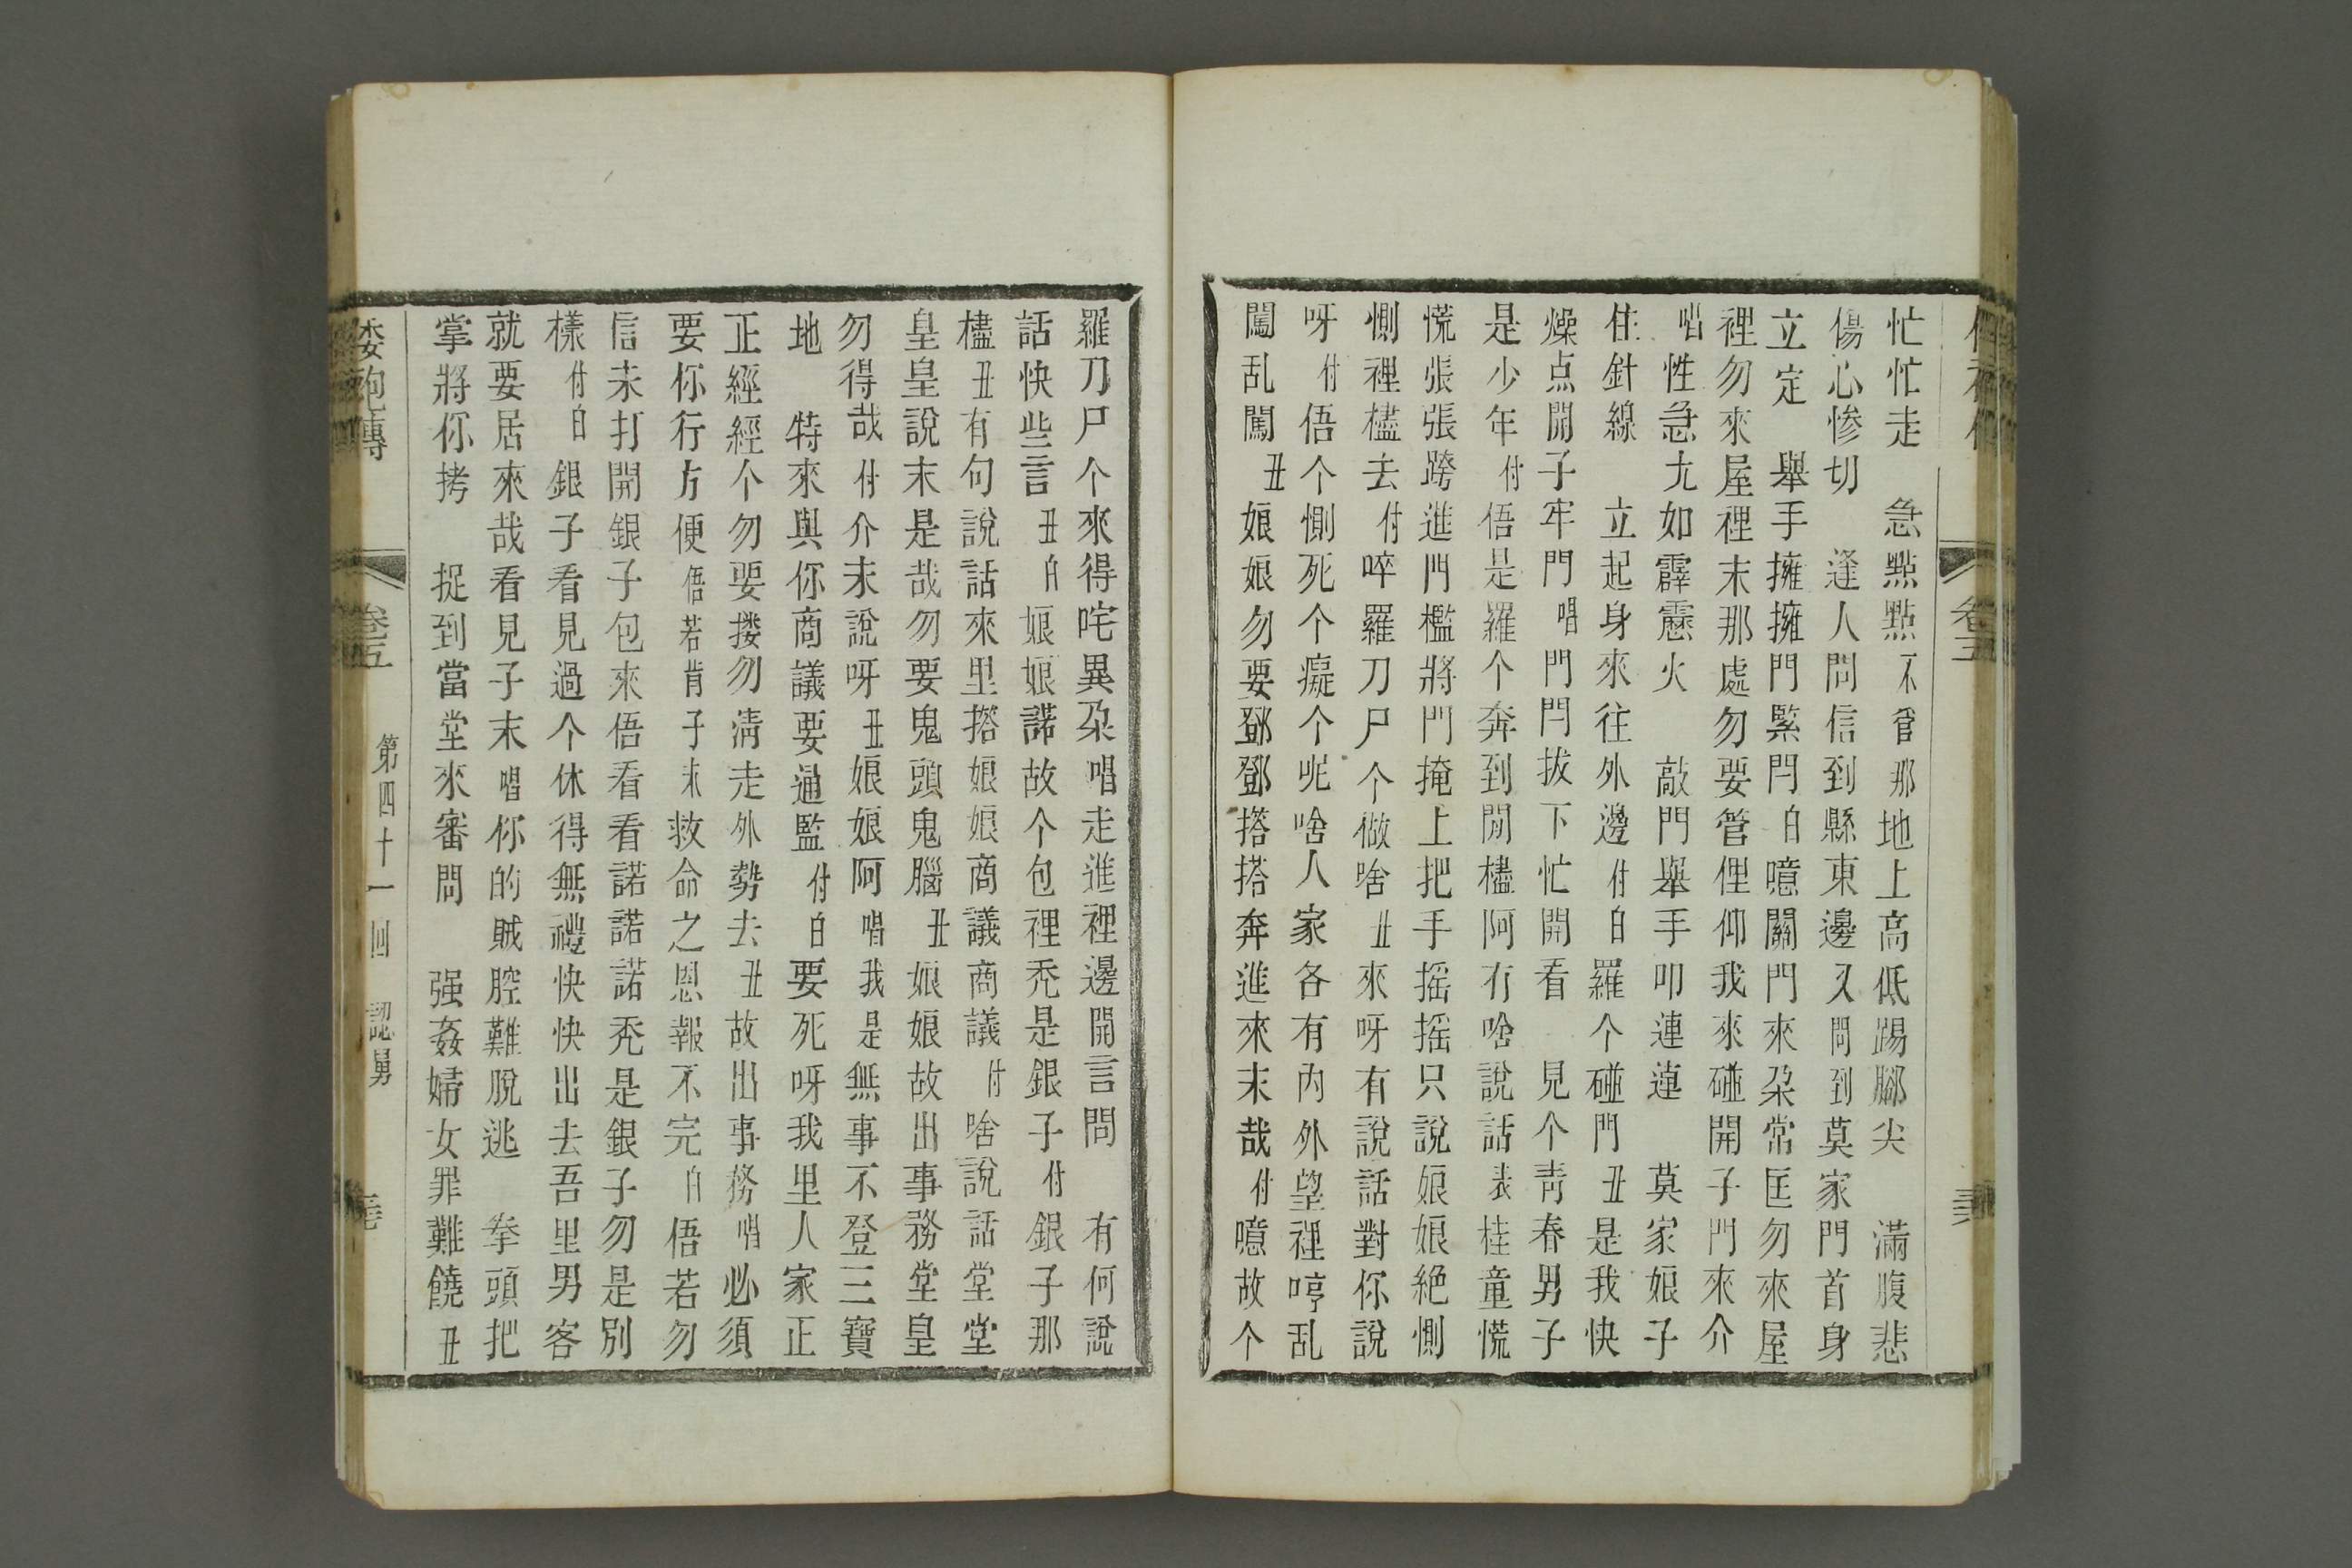 忙忙走　急點點不管那地上高低踢腳尖　滿腹悲
傷心慘切　逢人問信到縣東邊又問到莫家門首身
立定　舉手擁擁門緊閂白噫關門來朶常匡勿來屋
裡勿來屋裡末那處勿要管俚仰我來碰開子門來介
唱性急尢如霹靂火　敲門舉手叩連連　莫家娘子
住針線　立起身來往外邊付白羅个碰門丑是我快
燥点開子牢門唱門閂拔下忙開看　見个青春男子
是少年付俉是羅个奔到閒櫨阿有啥說話表桂童慌
慌張張跨進門檻將門掩上把手搖搖只說娘娘絕惻
惻裡櫨去付啐羅刀尸个做啥丑來呀有說話對你說
呀付俉个惻死个癡个呢啥人家各有內外望裡哼乱
闖乱闖丑娘娘勿要鄧鄧搭搭奔進來末哉付噫故个
羅刀尸个來得咤異朶唱走進裡邊開言問　有何說
話快些言丑白娘娘諾故个包裡禿是銀子付銀子那
櫨丑有句說話來里搭娘娘商議商議付啥說話堂堂
皇皇說末是哉勿要鬼頭鬼腦丑娘娘故出事務堂皇
勿得哉付介末說呀丑娘娘阿唱我是無事不登三寶
地　特來與你商議要通監付白要死呀我里人家正
正經經个勿要搂勿清走外勢去丑故出事務唱必須
要你行方便俉若肯子末救命之恩報不完白俉若勿
信末打開銀子包來俉看看諾諾諾禿是銀子勿是別
樣付白銀子看見過个休得無禮快快出去吾里男客
就要居來哉看見子末唱你的賊腔難脫逃　拳頭把
掌將你拷　捉到當堂來審問　强姦婦女罪難饒丑
倭袍傳　卷五　第四十一回　認舅